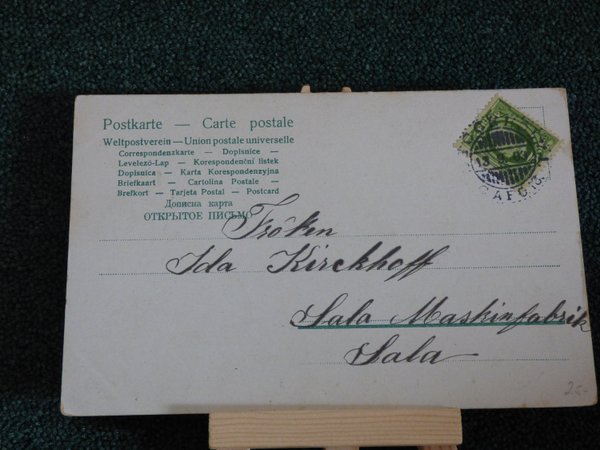 Postkarte — Carte postale
Weltpostverein — Union postale universelle
Correspondenzkarte — Dopisnice —
Levelező-Lap — Korespondenční lístek
Dopisnica — Karta Korespondenzyjna
Briefkaart — Cartolina Postale —
Brefkort — Tarjeta Postal — Postcard
Дописна карта
ОТКРЫТОЕ ПИСЬМО
Fröken
Ida Kirckhoff
Sala Maskinfabrik
Sala
2:-